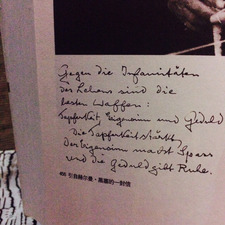 Gegen die Infamitäten
des Lebens sind die
besten Waffen:
Tapferkeit, Eigensinn und Geduld
Die Tapferkeit stärkt,
der Eigensinn macht Spass
und die Geduld gibt Ruhe.
引自赫尔曼·黑塞的一封信